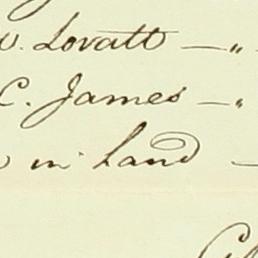 . Lovatt — "
C. James — "
in hand —